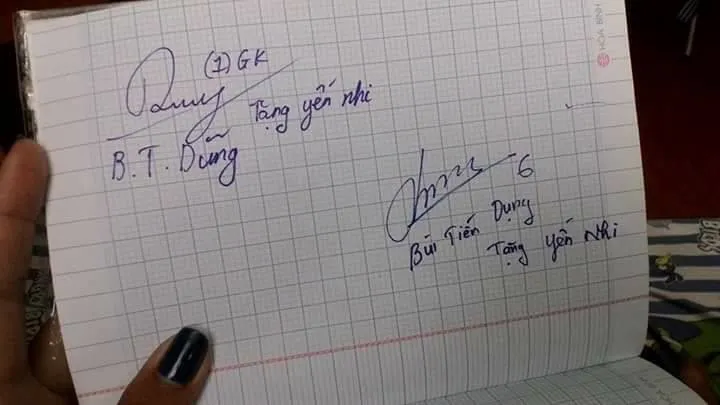 (1) GK
Tặng yến nhi
B. T. Dũng
6
Bùi Tiến Dụng
Tặng yến Nhi
HÒA BÌNH